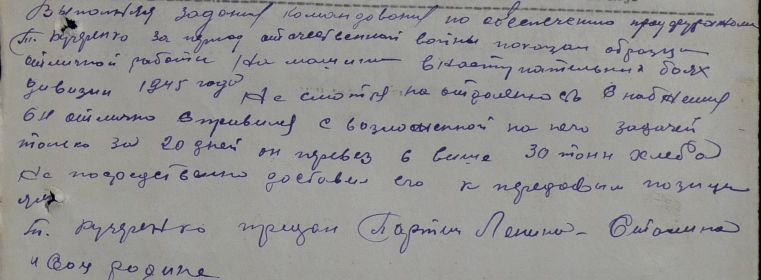 Выполняя задания командования по обеспечению продуктами
Т. Кучеренко за период отечественной войны показал образцы
отличной работы На машине в наступательных боях
дивизии 1945 года Не смотря на отдаленность снабжения
он отлично справился с возложенной на него задачей
только за 20 дней он перевез свыше 30 тонн хлеба
Не посредственно доставил его к передовым позици
ям
т. Кучеренко предан Партии Ленина - Сталина
и соц родине